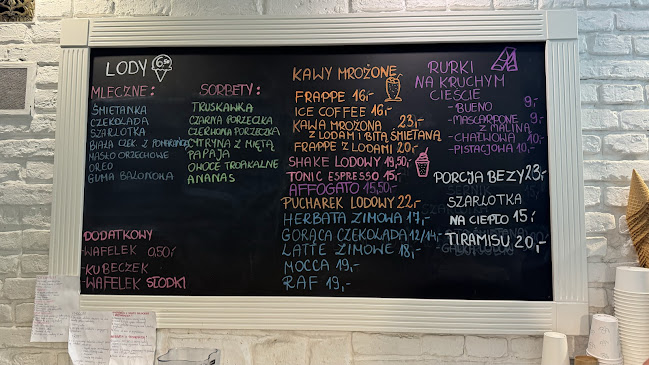 LODY 6,-
MLECZNE:
ŚMIETANKA
CZEKOLADA
SZARLOTKA
BIAŁA CZEK. Z POMARAŃCZĄ
MASŁO ORZECHOWE
OREO
GUMA BALONOWA
SORBETY:
TRUSKAWKA
CZARNA PORZECZKA
CZERWONA PORZECZKA
CYTRYNA Z MIĘTĄ
PAPAJA
OWOCE TROPIKALNE
ANANAS
DODATKOWY
-WAFELEK 0,50/
-KUBECZEK
-WAFELEK SŁODKI
KAWY MROŻONE
FRAPPE 16,-
ICE COFFEE 16,-
KAWA MROŻONA 23,-
Z LODAMI I BITĄ ŚMIETANĄ
FRAPPE Z LODAMI 20,-
SHAKE LODOWY 19,50,-
TONIC ESPRESSO 15,-
AFFOGATO 15,50,-
PUCHAREK LODOWY 22,-
HERBATA ZIMOWA 17,-
GORĄCA CZEKOLADA 12/14,-
LATTE ZIMOWE 18,-
MOCCA 19,-
RAF 19,-
RURKI
NA KRUCHYM
CIEŚCIE
-BUENO 9,-
-MASCARPONE 9,-
Z MALINĄ
-CHAŁWOWA 10,-
-PISTACJOWA 10,-
PORCJA BEZY 23,-
SZARLOTKA
NA CIEPŁO 15,-
TIRAMISU 20,-